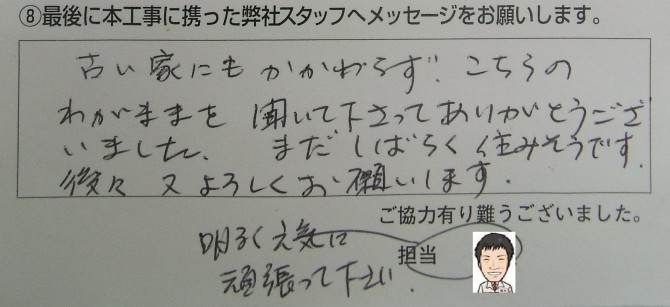 ⑧最後に本工事に携った弊社スタッフへメッセージをお願いします。
古い家にもかかわらず、こちらの
わがままを聞いて下さってありがとうござ
いました。まだしばらく住みそうです。
後々又よろしくお願いします。
ご協力有り難うございました。
明るく元気に
担当
頑張って下さい。